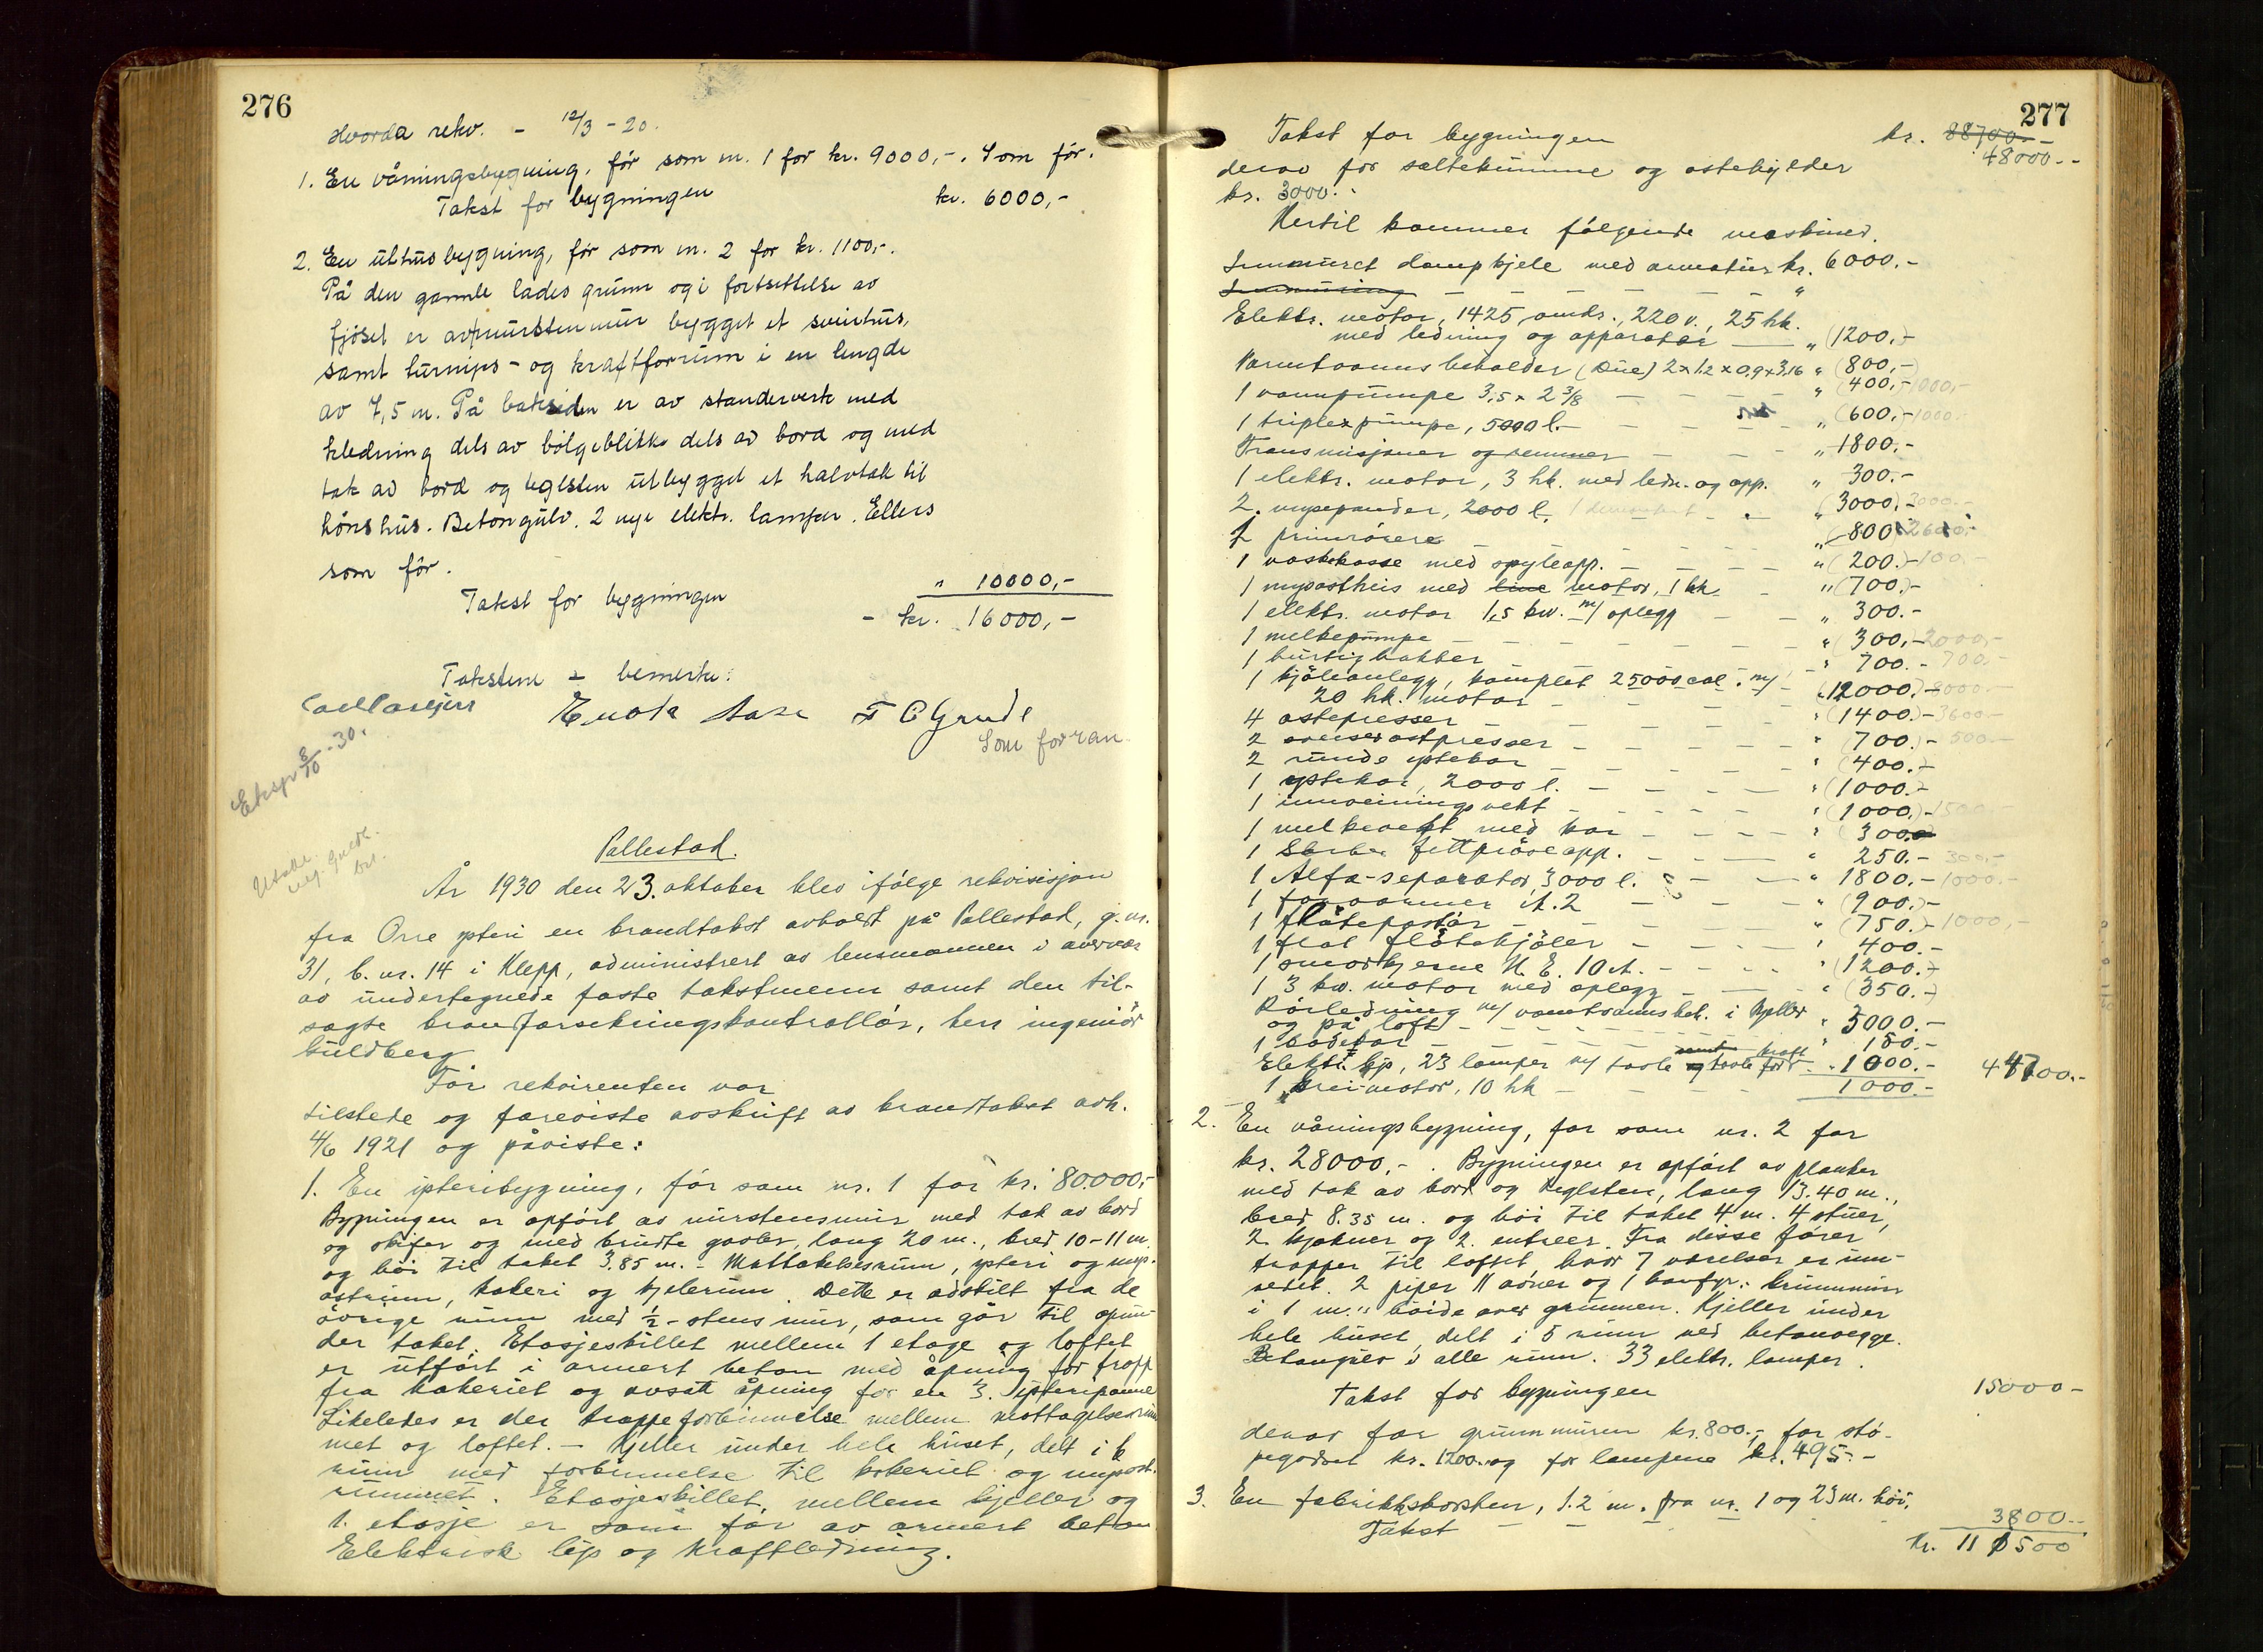 276
Hvorda rekv. - 12/3 - 20.
1. En våningsbygning, før som nr. 1 for kr. 9000,-. Som før.
Takst for bygningen kr. 6000,-
2. En uthusbygning, før som nr. 2 for kr. 1100,-.
På den gamle lades grunn og i fortsettelse av
fjøset er av murstenmur bygget et svinehus,
samt turnips- og kraftforrum i en lengde
av 7,5 m. På baksiden er av standerverk med
kledning dels av bølgeblikk dels av bord og med
tak av bord og teglsten utbygget et halvtak til
hønshus. Betongulv. 2 nye elektr. lamper. Ellers
som før.
Takst for bygningen " 10000,-
- kr. 16000,-
Takstene - bemerke:
Enok Aase T C Grude
Som forran
Eksp 8/10 -30.
Pallestad.
År 1930 den 23. oktober blev ifølge rekvisisjon
fra Orre ysteri en brandtakst avholdt på Pallestad, g.nr.
31, b.nr. 14 i Klepp, administrert av lensmannen i overvær
av undertegnede faste takstmenn samt den til-
sagte brandforsikringskontrollør, herr ingeniør
Guldberg
For rekvirenten var
tilstede og foreviste avskrift av brandtakst avh.
4/6 1921 og påviste:
1. En ysteribygning, før som nr. 1 for kr. 80.000,-
Bygningen er opført av murstensmur med tak av bord
og skifer og med brudte gavler, lang 20 m., bred 10-11 m.
og høi til taket 3.85 m. - Mottakelsesrum, ysteri og mys-
ostrum, kokeri og kjelerum. Dette er adskilt fra de
øvrige rum med 1/2-stens mur, som går til op un-
der taket. Etasjeskillet mellem 1 etage og loftet
er utført i armert beton med åpning for trapp
fra kokeriet og avsatt åpning for en 3. ysteripanne
Likeledes er der trappeforbinnelse mellem mottagelsesrum
met og loftet. - Kjeller under hele huset, delt i 6
rum med forbinnelse til kokeriet og mysost-
rummet. Etasjeskillet mellem kjeller og
1. etasje er som før av armert beton
Elektrisk lys og kraftledning.
277
Takst for bygningen kr. 88700.-
48000.-
derav for saltekumme og ostehylder
kr. 3000.-
Hertil kommer følgende maskiner.
Innmuret dampkjele med armatur kr. 6000.-
Innmuring - - - - - "
Elektr. motor, 1425 omdr., 220 v., 25 hk.
med ledning og apparater " (1200.-)
Varmtvannsbeholder (Due) 2 x 1.2 x 0.9 x 3.16 " (800,-)
1 vannpumpe 3,5 x 2 3/8 " (400,- 1000,-
1 triplexpumpe, 5000 l. " (600,- 1000.-
Transmisjoner og remmer " 1800.-
1 elektr. motor, 3 hk. med ledn. og app. " 300.-
2. mysepander, 2000 l. " (3000.- 3000.-
2 primrørere " 800
1 vaskekasse med spyleapp. " (200.- 100.-
1 mysostheis med motor, 1 hk " (700.-)
1 elektr. motor 1,5 kw. m/ oplegg " 300.-
1 melkepumpe " (300,- 2000,-
1 hurtighakker " 700.- 700.
1 kjøleanlegg, komplet 25000 cal. m/
20 hk. motor (12000.- 8000.-
4 ostepresser " (1400.- 3600.-
2 ostpresser " (700.- 500.-
2 runde ystekar " (400.-)
1 ystekar, 2000 l. " (1000.-
1 innveiningsvekt " (1000.- 1500
1 melkevekt med kar " (300
1 Gerber fettprøveapp. " 250.- 300,-
1 Alfa-separator 3000 l. " 1800.- 1000.-
1 forvarmer st. 2 " (900.-)
1 fløtepastør " (750.- 1000,-
1 flat fløtekjøler " 400.-
1 smørkjerne H. E. 10 st. " (1200.-)
1 3 kw. motor med oplegg " (350.-)
Rørledning m/ varmtvannsbeh. i kjeller
og på loft " 5000.-
1 badekar " 150.-
Elektr. lys, 23 lamper m/ tavle og tavle for kraft " 1000.-
1 motor, 10 hk 1000.- 44700.-
2. En våningsbygning, før som nr. 2 for
kr. 28000.-. Bygningen er opført av planker
med tak av bord og teglsten, lang 13.40 m.,
bred 8.35 m. og høi til taket 4 m. 4 stuer,
2 kjøkner og 2. entreer. Fra disse fører
trapper til loftet, hvor 7 værelser er inn-
redet. 2 piper 11 ovner og 1 komfyr. Grunnmur
i 1 m.s høide over grunnen. Kjeller under
hele huset, delt i 5 rum ved betonvegge.
Betongulv i alle rum. 33 elektr. lamper.
Takst for bygningen 15000-
derav for grunnmuren kr. 800.-, for stø-
pegodset kr. 1200. og for lampene kr. 495.-
3. En fabrikkskorsten, 1.2 m. fra nr. 1 og 23 m. høi.
Takst 3800.-
Kr. 111500